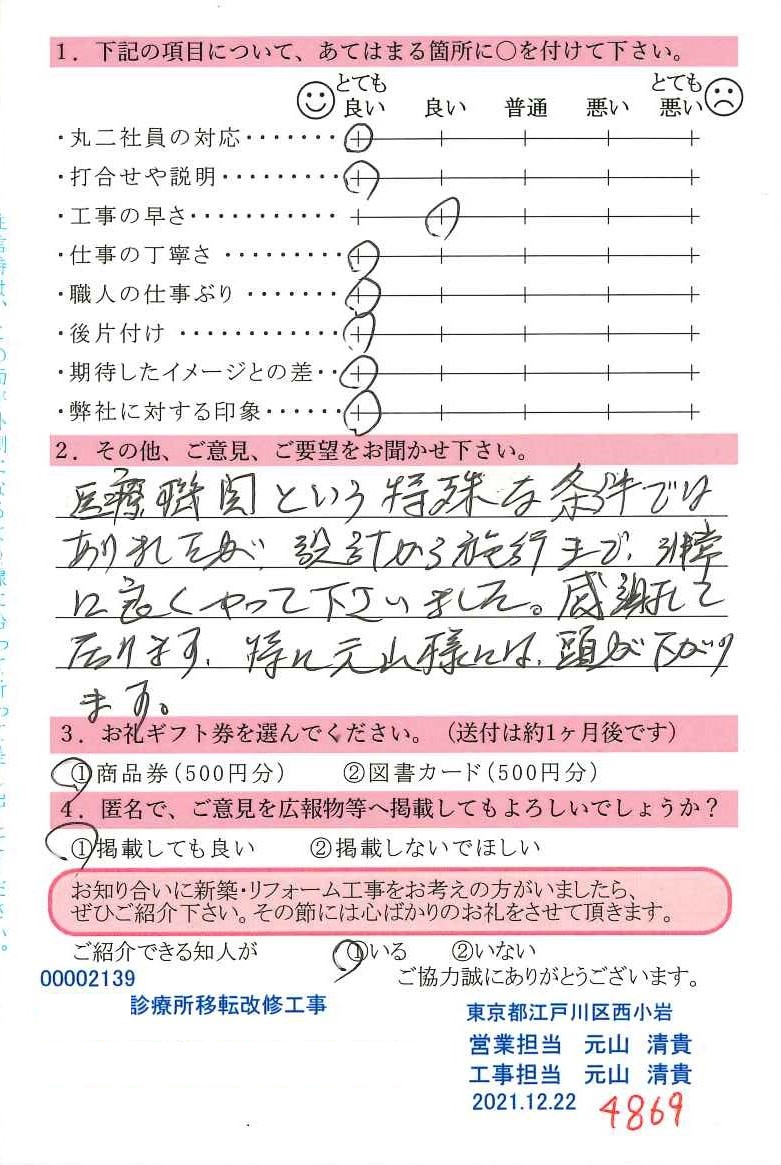 1．下記の項目について、あてはまる箇所に〇を付けて下さい。
とても良い 良い 普通 悪い とても悪い
・丸二社員の対応・・・・・・・
・打合せや説明・・・・・・・・・
・工事の早さ・・・・・・・・・・・
・仕事の丁寧さ ・・・・・・・・・
・職人の仕事ぶり ・・・・・・・
・後片付け ・・・・・・・・・・・・
・期待したイメージとの差・・
・弊社に対する印象・・・・・・
2．その他、ご意見、ご要望をお聞かせ下さい。
医療機関という特殊な条件では
ありましたが、設計から施行まで、非常
に良くやって下さいました。感謝して
おります。特に元山様には、頭が下がり
ます。
3．お礼ギフト券を選んでください。（送付は約1ヶ月後です）
①商品券（500円分） ②図書カード（500円分）
4．匿名で、ご意見を広報物等へ掲載してもよろしいでしょうか？
①掲載しても良い ②掲載しないでほしい
お知り合いに新築・リフォーム工事をお考えの方がいましたら、
ぜひご紹介下さい。その節には心ばかりのお礼をさせて頂きます。
ご紹介できる知人が ①いる ②いない
ご協力誠にありがとうございます。
00002139
診療所移転改修工事
東京都江戸川区西小岩
営業担当 元山 清貴
工事担当 元山 清貴
2021.12.22
4869